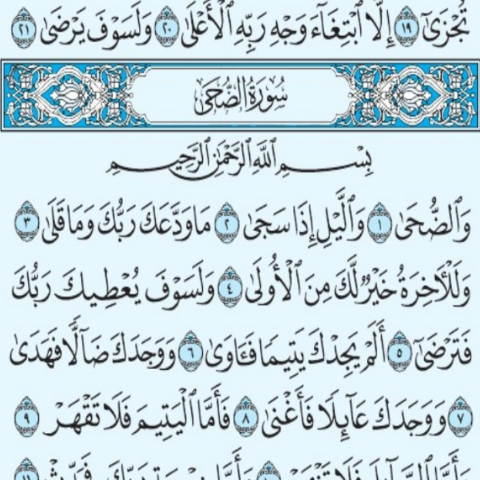 تُجْزَىٰٓ ١٩ إِلَّا ٱبْتِغَآءَ وَجْهِ رَبِّهِ ٱلْأَعْلَىٰ ٢٠ وَلَسَوْفَ يَرْضَىٰ ٢١
سُورَةُ الضُّحَىٰ
بِسْمِ ٱللَّهِ ٱلرَّحْمَٰنِ ٱلرَّحِيمِ
وَٱلضُّحَىٰ ١ وَٱلَّيْلِ إِذَا سَجَىٰ ٢ مَا وَدَّعَكَ رَبُّكَ وَمَا قَلَىٰ ٣
وَلَلْأٓخِرَةُ خَيْرٌ لَّكَ مِنَ ٱلْأُولَىٰ ٤ وَلَسَوْفَ يُعْطِيكَ رَبُّكَ
فَتَرْضَىٰٓ ٥ أَلَمْ يَجِدْكَ يَتِيمًا فَـَٔاوَىٰ ٦ وَوَجَدَكَ ضَآلًّا فَهَدَىٰ
٧ وَوَجَدَكَ عَآئِلًا فَأَغْنَىٰ ٨ فَأَمَّا ٱلْيَتِيمَ فَلَا تَقْهَرْ ٩